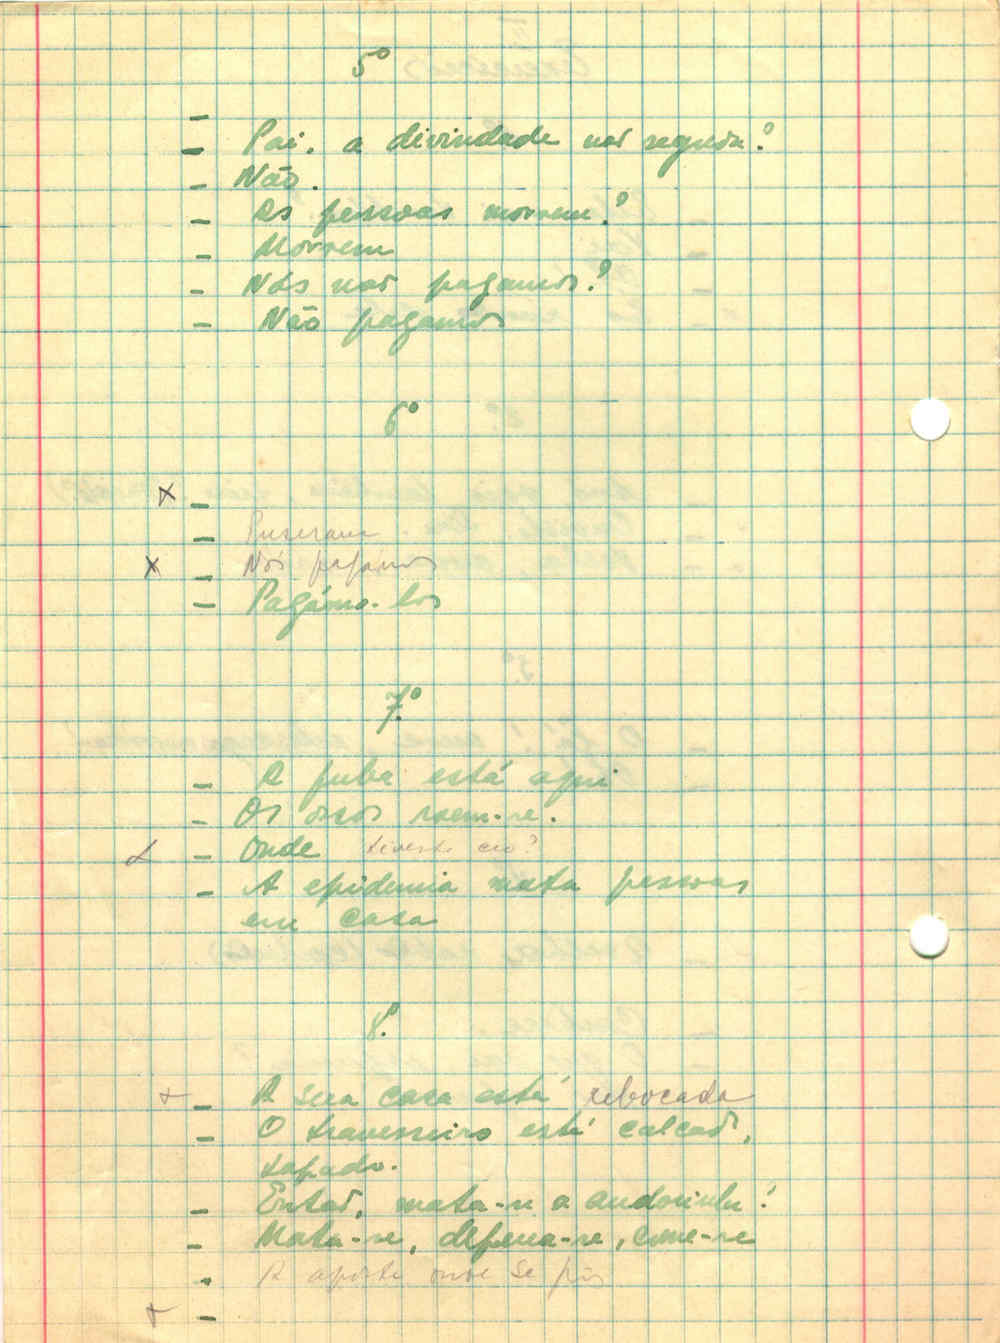 5º
-
- Pai, a divindade não segreda?
- Não.
- As pessoas morrem?
- Morrem
- Nós não pagamos?
- Não pagamos
6º
x -
- Puseram
x - Nós pagámos
- Pagámo-los
7º
- A fuba está aqui
- Os ossos roem-se.
- Onde tiveste
- A epidemia mata pessoas
em casa
8º
+ - A sua casa está rebocada
- O travesseiro está calcado,
tapado.
- Então, mata-se a andorinha!
- Mata-se, depena-se, come-se
- A onde se pôs
+ -